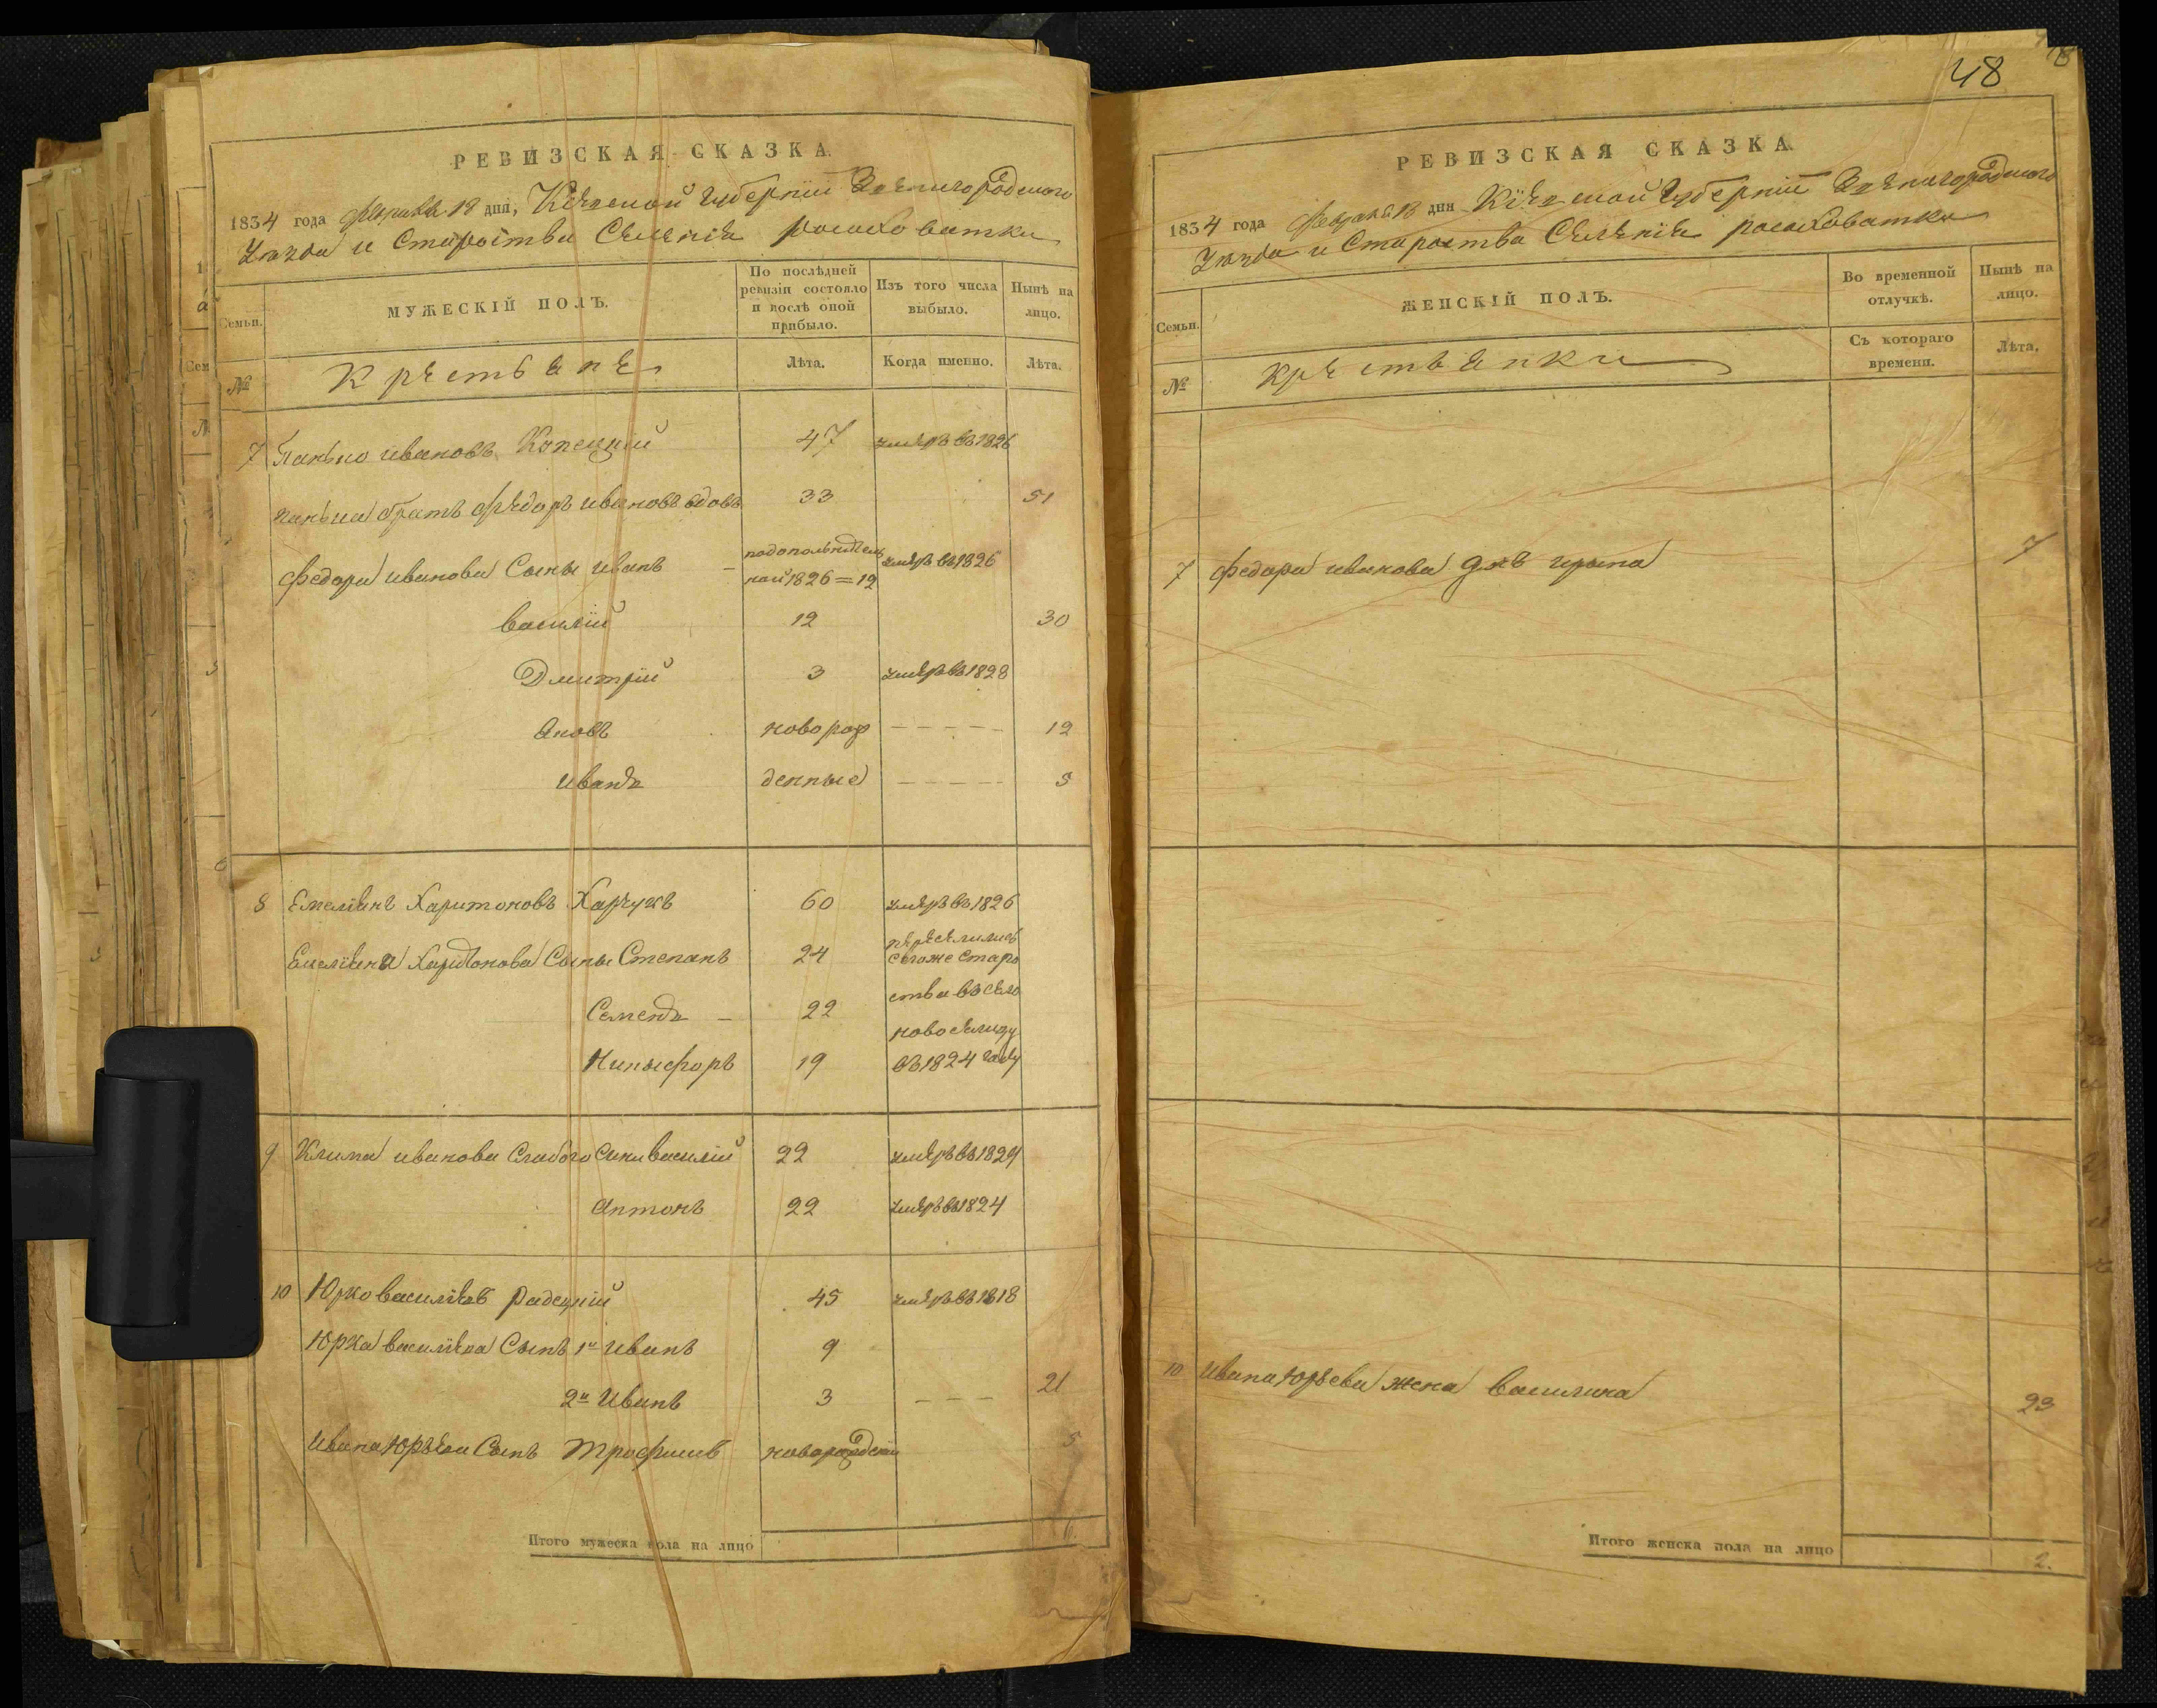 РЕВИЗСКАЯ СКАЗКА.
1834 года Февраля 18 дня, Кіевской Губерніи Звенигородского
Уезда и Староства Селенія Росоховатки
Семьи.
МУЖЕСКІЙ ПОЛЪ.
По послѣдней ревизіи состояло и послѣ оной прибыло.
Изъ того числа выбыло.
Нынѣ на лицо.
№
Крестьяне
Лѣта.
Когда именно.
Лѣта.
7 Панько Ивановъ Копецкій 47 умеръ въ 1826
Панька братъ Федоръ Ивановъ вдовъ 33 51
Федора Иванова Сыны Иванъ – 1826=12 умеръ въ 1826
Василій 12 30
Дмитрій 3 умеръ въ 1828
Яковъ новорож – – – – 12
Иванъ денные – – – – 3
8 Емеліянъ Харитоновъ Харчукъ 60 умеръ въ 1826
Емеліяна Харитонова Сыны Степанъ 24 переселились
сегоже Старо
ства въ село
Семенъ – 22
новоселицу
Никыфоръ 19 въ 1824 году
9 Клима Иванова Слабого Сыны Василій 22 умеръ въ 1824
Антонъ 22 умеръ въ 1824
10 Юрко Василіевъ Радецкій 45 умеръ въ 1818
Юрка Василіева Сынъ 1й Иванъ 9
2й Иванъ 3 – – – 21
Ивана Юрьева Сынъ Трофимъ новорожденый 5
Итого мужеска пола на лицо 6.
48
РЕВИЗСКАЯ СКАЗКА.
1834 года Февраля 18 дня Кіевской Губерніи Звенигородского
Уезда и Староства Селенія Росоховатки
Семьи.
ЖЕНСКІЙ ПОЛЪ.
Во временной отлучкѣ.
Нынѣ на лицо.
№
Крестьянки
Съ котораго времени.
Лѣта.
7 Федора Иванова дочь Ирына 7
10 Ивана Юрьева жена Василина 23
Итого женска пола на лицо 2.